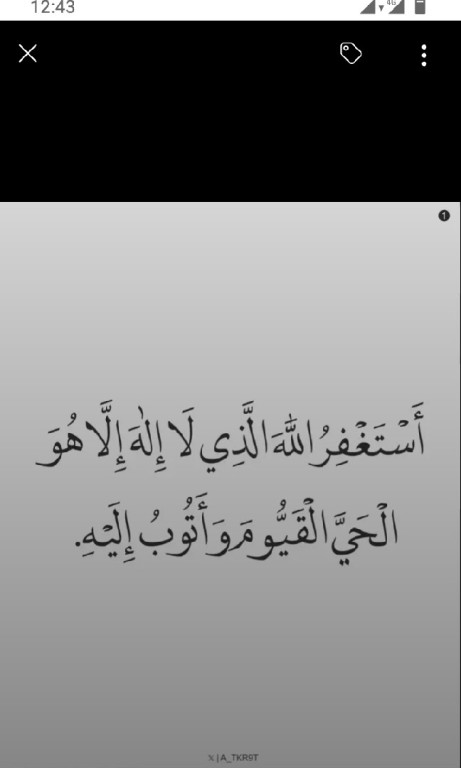 12:43
4G
1
أَسْتَغْفِرُ اللّٰهَ الَّذِي لَا إِلٰهَ إِلَّا هُوَ
الْحَيَّ الْقَيُّومَ وَأَتُوبُ إِلَيْهِ.
𝕏 | A_TKR9T